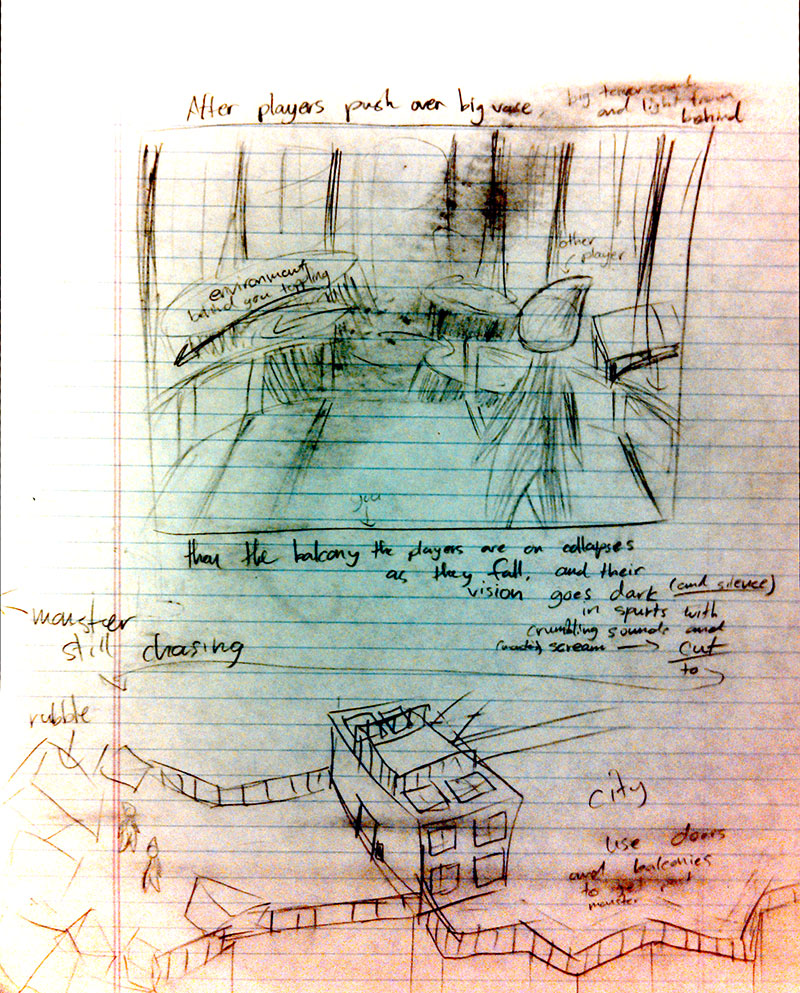 After players push over big vase,
big tower
and light from
behind
other
player
environment
behind you toppling
you
then the balcony the players are on collapses
as they fall, and their
vision goes dark (and silence)
in spurts with
crumbling sounds and
scream → cut
to
monster
still chasing
rubble
city
use doors
and balconies
to get past
monster